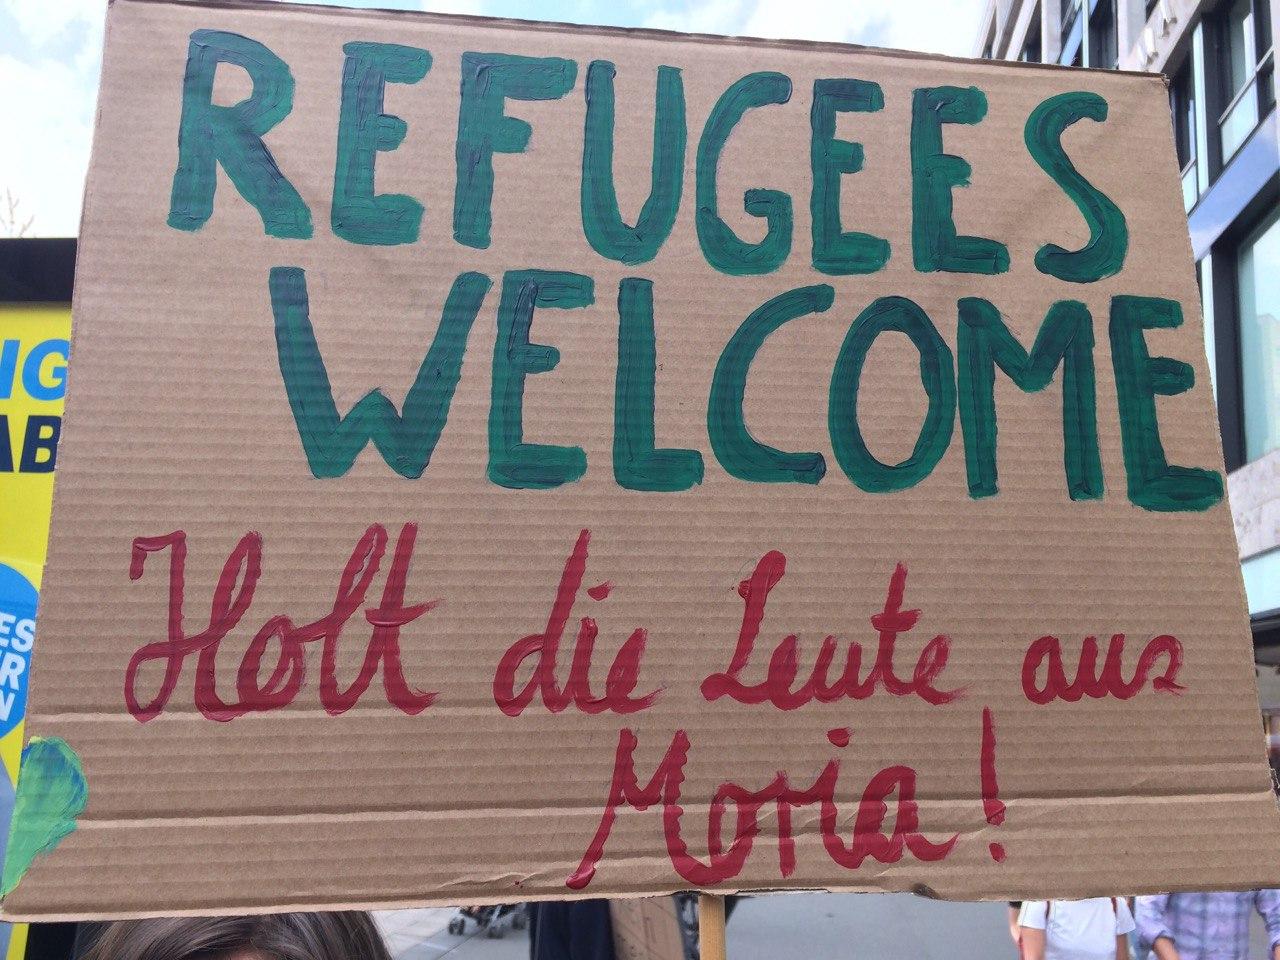 REFUGEES
WELCOME
Holt die Leute aus
Moria!
IG
AB
ES
ER
N